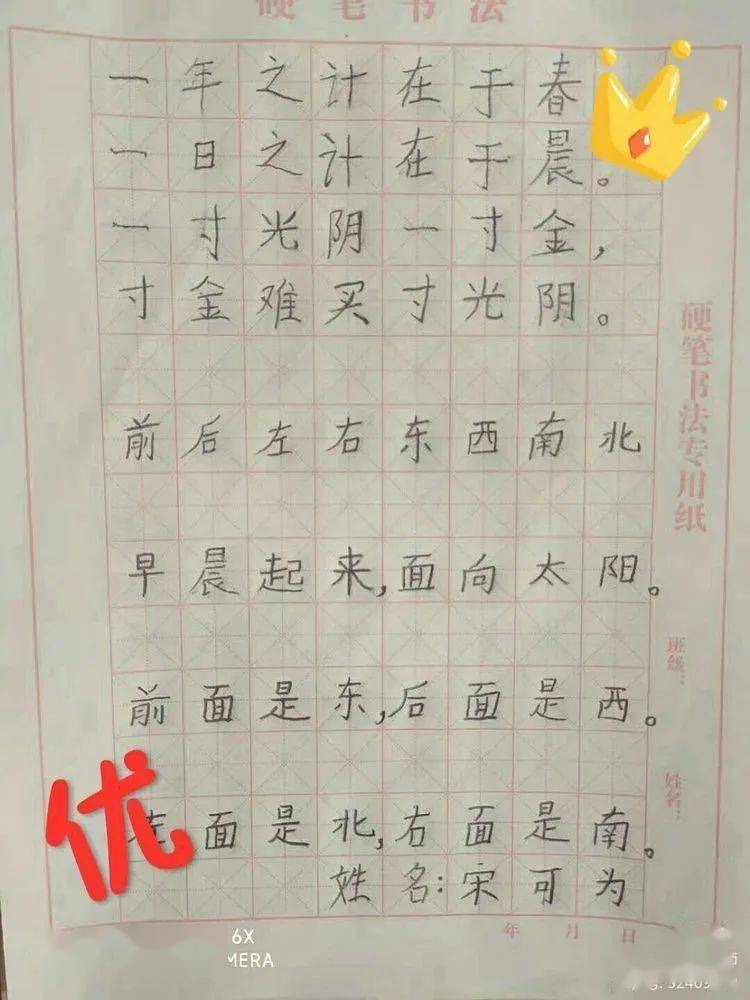 硬笔书法
一年之计在于春
一日之计在于晨。
一寸光阴一寸金,
寸金难买寸光阴。
前后左右东西南北
早晨起来,面向太阳。
前面是东,后面是西。
左面是北,右面是南。
姓名:宋可为
优
硬笔书法专用纸
班级:
姓名:
年 月 日
6X
MERA